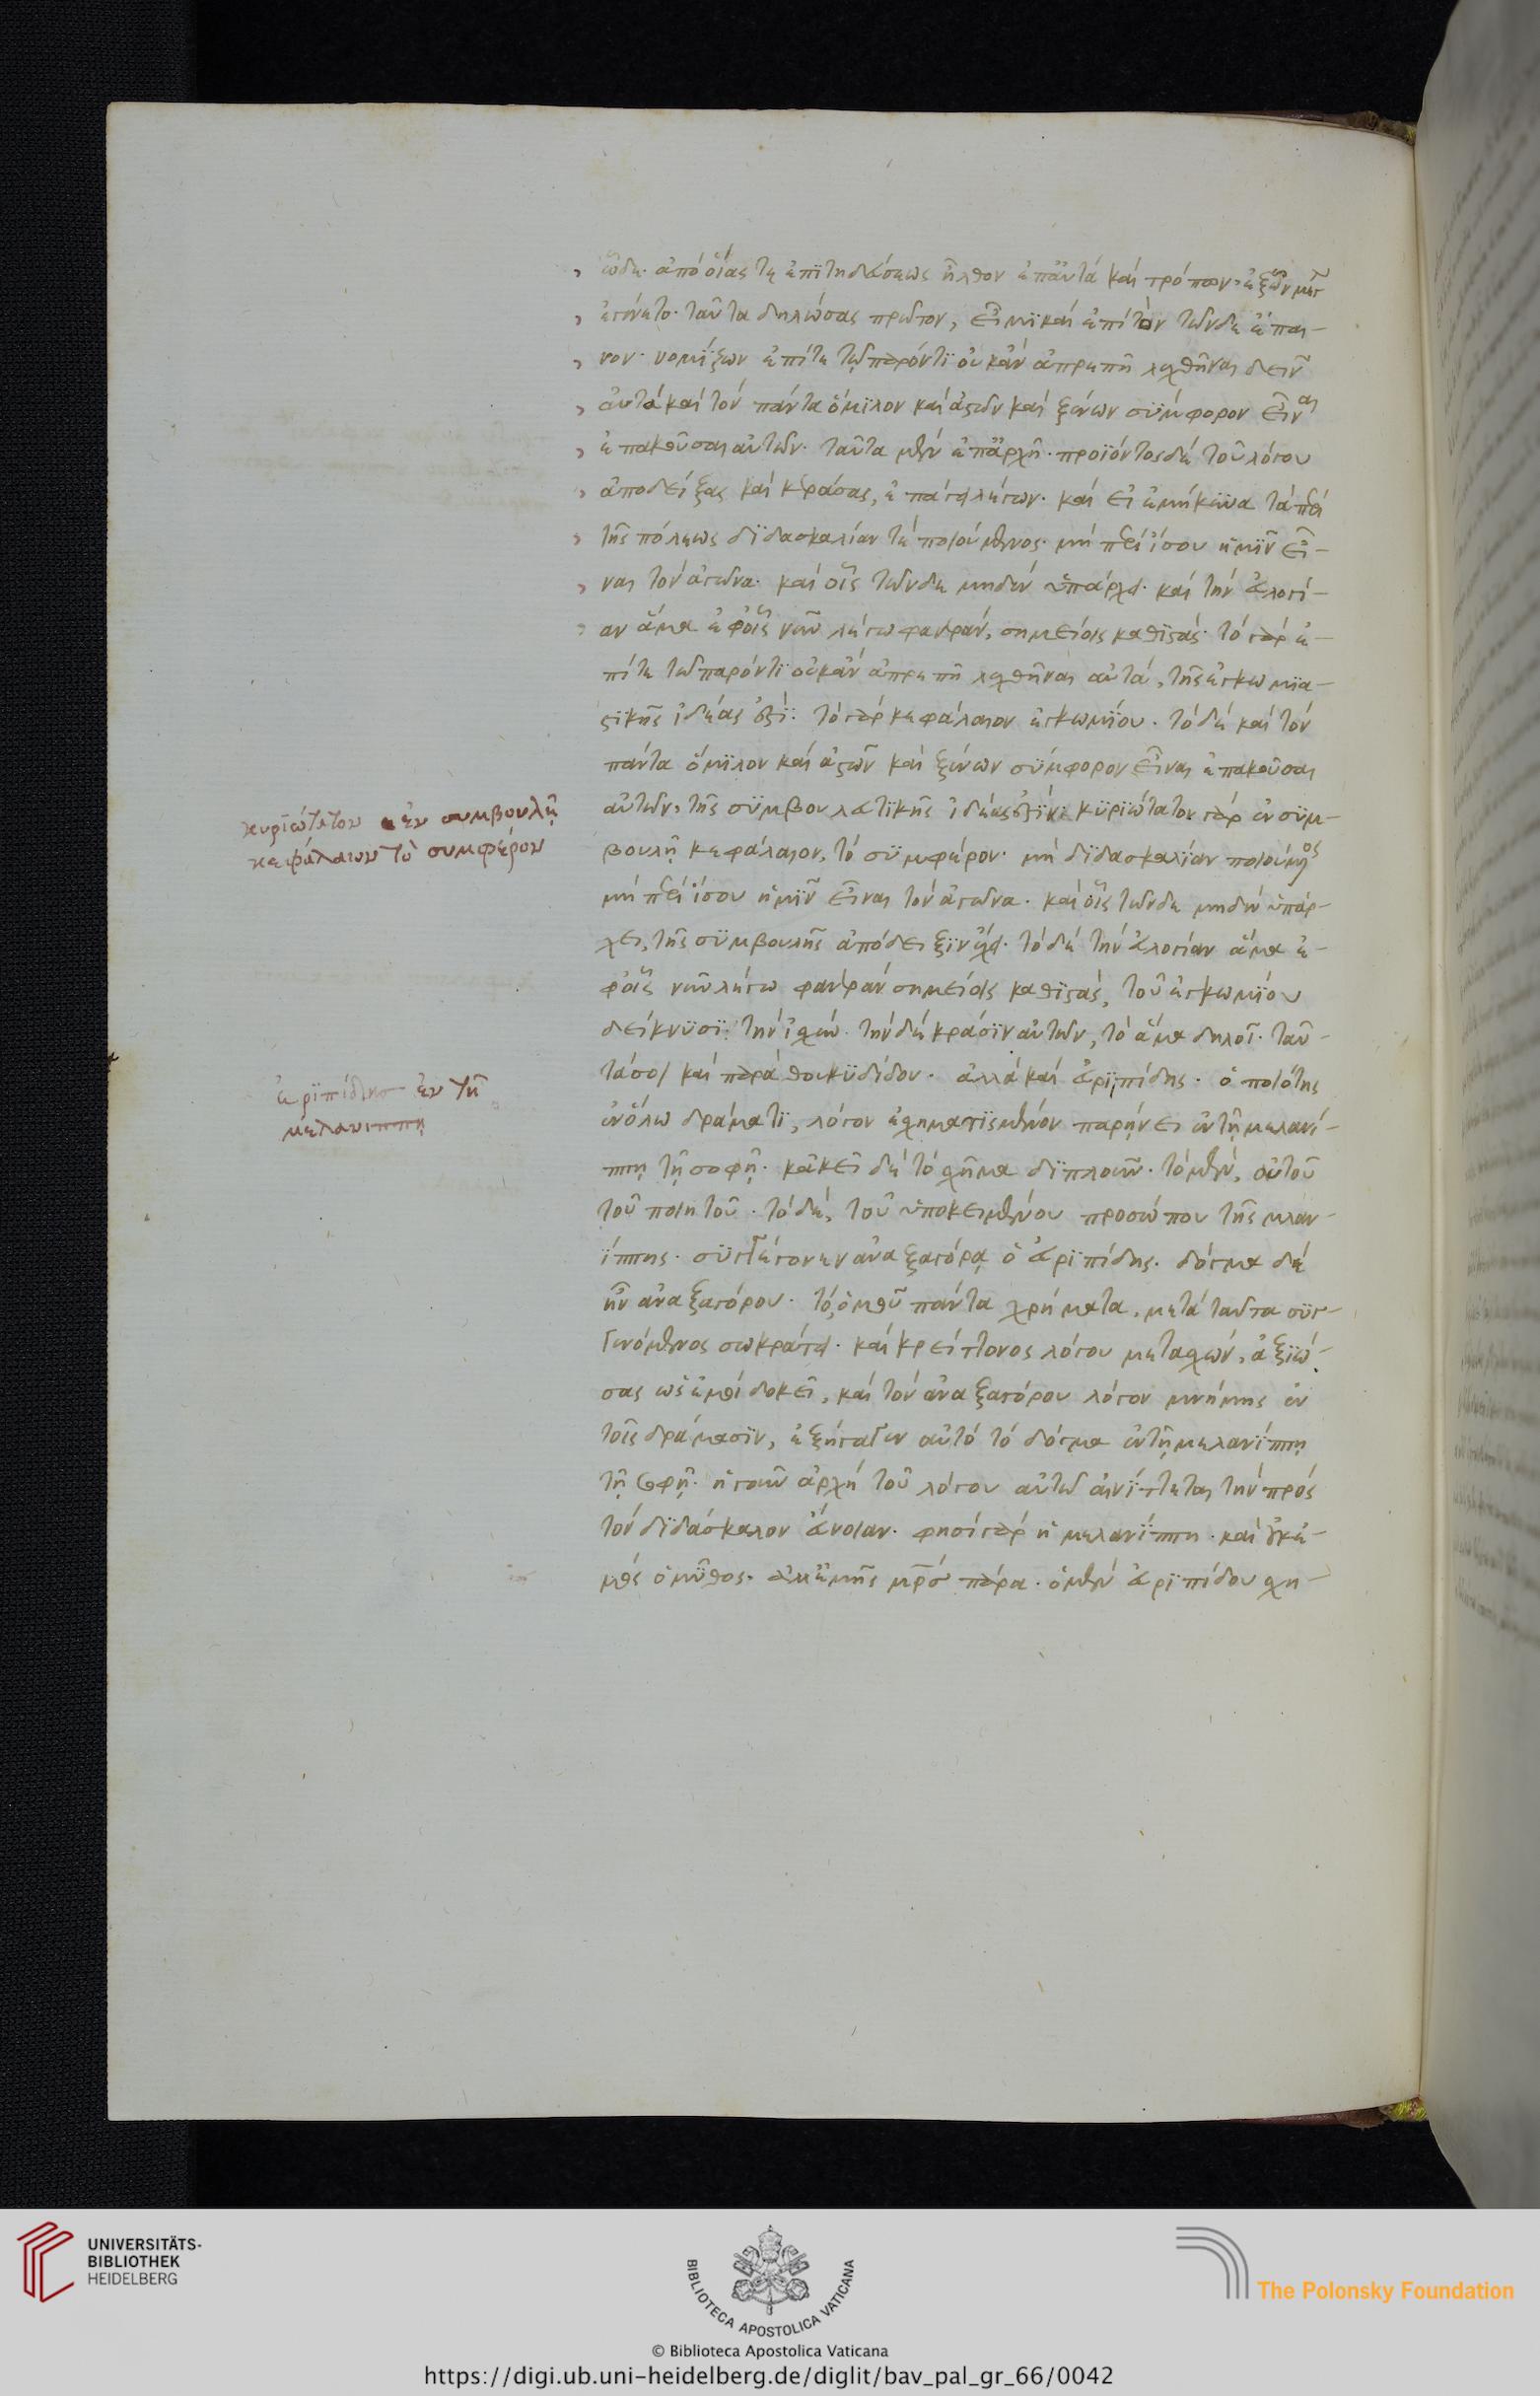 ὧδε. ἀπὸ οἵας τε ἐπιτηδεύσεως ἤλθον ἐπ' αὐτὰ καὶ τρόπων. ἐξ ὧν
ἐγένετο. ταῦτα δηλώσας πρῶτον, εἶμι καὶ ἐπὶ τὸν τῶνδε ἔπαι-
νον. νομίζων ἐπί τε τῷ παρόντι οὐκ ἂν ἀπρεπῆ λεχθῆναι
αὐτὰ καὶ τὸν πάντα ὅμιλον καὶ ἀστῶν καὶ ξένων σύμφορον εἶναι
ἐπακοῦσαι αὐτῶν. ταῦτα μὲν ἐπ' ἀρχῇ. προϊόντος δὲ τοῦ λόγου
ἀποδείξας καὶ κεράσας, ἐπάγει λέγων. καὶ εἰ ἐμήκυνα τὰ περὶ
τῆς πόλεως διδασκαλίαν τὲ ποιούμενος. μὴ περὶ ἴσου ἡμῖν εἶ-
ναι τὸν ἀγῶνα. καὶ οἷς τῶνδε μηδὲν ὑπάρχει. καὶ τὴν εὐλογί-
αν ἅμα ἐφ' οἷς νῦν λέγω φανερὰν, σημείοις καθιστάς. τὸ γὰρ ἐ-
πί τε τῷ παρόντι οὐκ ἂν ἀπρεπῆ λεχθῆναι αὐτὰ, τῆς ἐγκωμια-
στικῆς ἰδέας ἐστί. τὸ γὰρ κεφάλαιον ἐγκωμίου. τὸ δὲ καὶ τὸν
πάντα ὅμιλον καὶ ἀστῶν καὶ ξένων σύμφορον εἶναι ἐπακοῦσαι
αὐτῶν, τῆς συμβουλευτικῆς ἰδέας ἐστίν. κυριώτατον γὰρ ἐν συμ-
βουλῇ κεφάλαιον, τὸ συμφέρον. μὴ διδασκαλίαν ποιούμενος
μὴ περὶ ἴσου ἡμῖν εἶναι τὸν ἀγῶνα. καὶ οἷς τῶνδε μηδὲν ὑπάρ-
χει, τῆς συμβουλῆς ἀπόδειξιν ἔχει. τὸ δὲ τὴν εὐλογίαν ἅμα ἐ-
φ' οἷς νῦν λέγω φανερὰν σημείοις καθιστάς, τοῦ ἐγκωμίου
δείκνυσι τὴν ἰσχύν. τὴν δὲ κρᾶσιν αὐτῶν, τὸ ἅμα δηλοῖ. ταῦ-
τά σοι καὶ παρὰ θουκυδίδου. ἀλλὰ καὶ εὐριπίδης. ὁ ποιητὴς
ἐν ὅλω δράματι, λόγον ἐσχηματισμένον παρήνει ἐν τῇ μελανί-
ππῃ τῇ σοφῇ. κἀκεῖ δὲ τὸ σχῆμα διπλοῦν. τὸ μὲν, αὐτοῦ
τοῦ ποιητοῦ. τὸ δὲ, τοῦ ὑποκειμένου προσώπου τῆς μελαν-
ίππης. συγγέγονεν ἀναξαγόρᾳ ὁ εὐριπίδης. δόγμα δὲ
ἦν ἀναξαγόρου. τὸ, ὁμοῦ πάντα χρήματα. μετὰ ταῦτα συγ-
γενόμενος σωκράτει. καὶ κρείττονος λόγου μετασχὼν, ἀξιώ-
σας ὡς ἐμοὶ δοκεῖ, καὶ τὸν ἀναξαγόρου λόγον μνήμης ἐν
τοῖς δράμασιν, ἐξήγαγεν αὐτὸ τὸ δόγμα ἐν τῇ μελανίππῃ
τῇ σοφῇ. ἡ γοῦν ἀρχὴ τοῦ λόγου αὐτῶ αἰνίττεται τὴν πρὸς
τὸν διδάσκαλον εὔνοιαν. φησὶ γὰρ ἡ μελανίππη. καὶ οὐκ ἐ-
μὸς ὁ μῦθος. ἀλλ' ἐμῆς μρσ πάρα. ὁ μὲν εὐριπίδου σχη-
κυριώτατον ἐν συμβουλῇ
κεφάλαιον τὸ συμφέρον
ἐριπίδης ἐν τῇ
μελανιππῃ
UNIVERSITÄTS-
BIBLIOTHEK
HEIDELBERG
BIBLIOTECA APOSTOLICA VATICANA
© Biblioteca Apostolica Vaticana
The Polonsky Foundation
https://digi.ub.uni-heidelberg.de/diglit/bav_pal_gr_66/0042